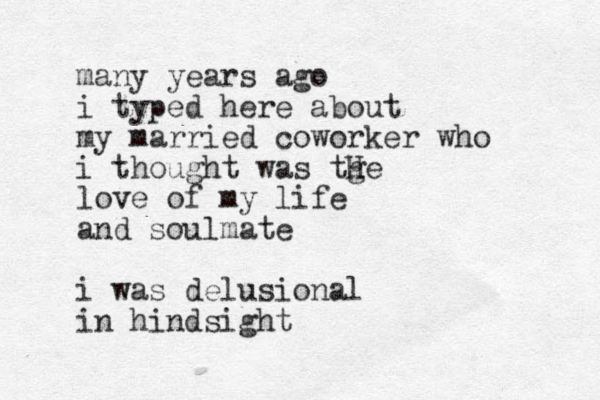 many years ago
i typed here about
my married coworker who
i thought was tHe
love of my life
and soulmate

i was delusional
in hindsight